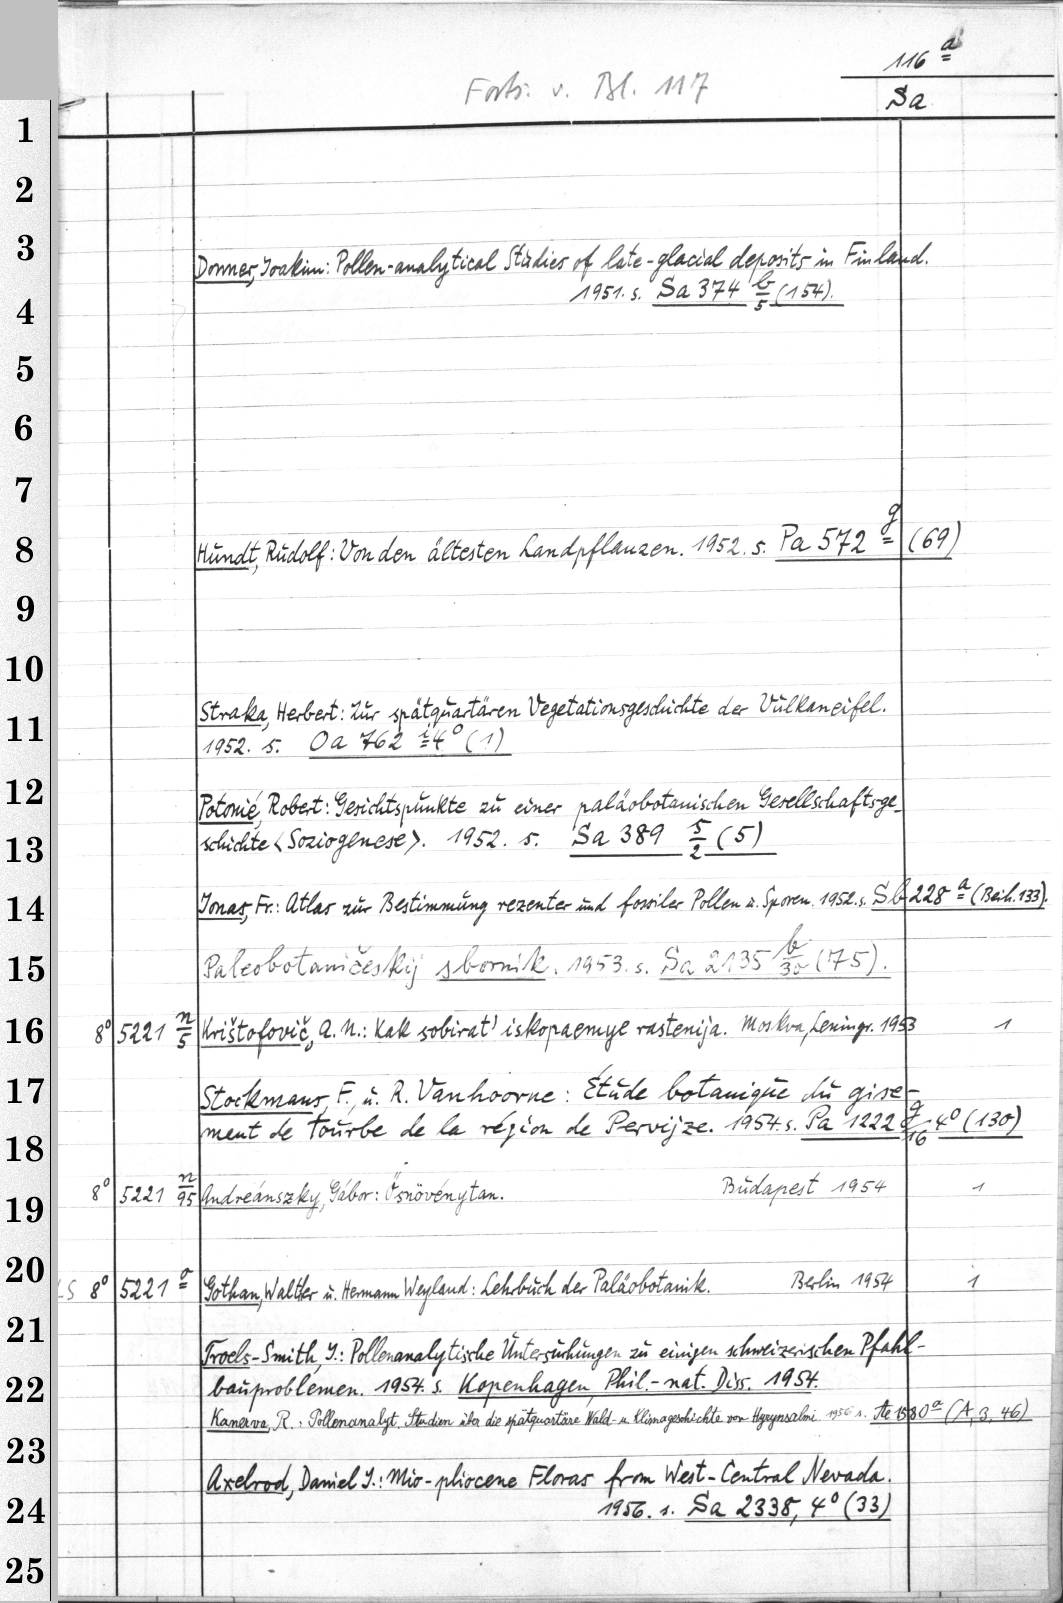 116 a
Forts. v. Bl. 117
Sa
1
2
3
Donner, Joakim: Pollen-analytical Studies of late-glacial deposits in Finland.
1951. s. Sa 374 b/5 (154).
4
5
6
7
8
Hundt, Rudolf: Von den ältesten Landpflanzen. 1952. s. Pa 572 g (69)
9
10
Straka, Herbert: Zur spätquartären Vegetationsgeschichte der Vulkaneifel.
11
1952. s. Oa 762 i 4° (1)
12
Potonié, Robert: Gesichtspunkte zu einer paläobotanischen Gesellschaftsge-
13
schichte <Soziogenese>. 1952. s. Sa 389 5/2 (5)
14
Jonas, Fr.: Atlas zur Bestimmung rezenter und fossiler Pollen u. Sporen. 1952. s. Sb 228 a (Beih. 133).
15
Paleobotaničeskij sbornik. 1953. s. Sa 2135 b/30 (75).
16
8° 5221 n/5 Krištofovič, A. N.: Kak sobirat' iskopaemye rastenija. Moskva, Leningr. 1953 1
17
Stockmans, F., u. R. Vanhoorne: Étude botanique du gise-
18
ment de tourbe de la région de Pervijze. 1954. s. Pa 1222 g/16 4° (130)
19
8° 5221 n/95 Andreánszky, Gábor: Ősnövénytan. Budapest 1954 1
20
LS 8° 5221 o Gothan, Walther u. Hermann Weyland: Lehrbuch der Paläobotanik. Berlin 1954 1
21
Troels-Smith, J.: Pollenanalytische Untersuchungen zu einigen schweizerischen Pfahl-
22
bauproblemen. 1954. s. Kopenhagen, Phil.-nat. Diss. 1954.
Kanerva, R.: Pollenanalyt. Studien über die spätquartäre Wald- u. Klimageschichte von Hyrynsalmi. 1956 s. Ae 1580 a (A, 3, 46)
23
Axelrod, Daniel J.: Mio-pliocene Floras from West-Central Nevada.
24
1956. s. Sa 2338, 4° (33)
25